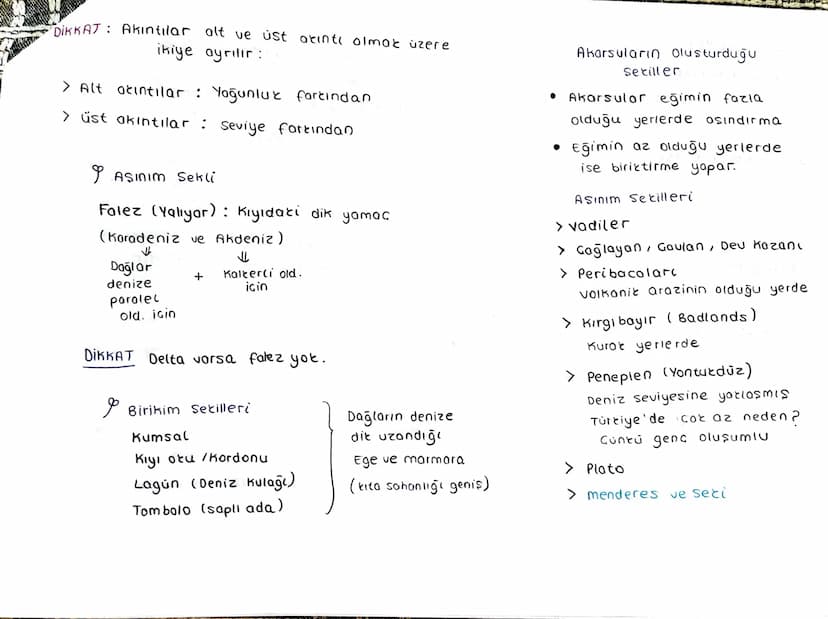 DİKKAT : Akıntılar alt ve üst akıntı olmak üzere
ikiye ayrılır :
> Alt akıntılar : Yoğunluk farkından
> üst akıntılar : Seviye farkından
Aşınım Şekli
Falez (Yalıyar) : Kıyıdaki dik yamaç
(Karadeniz ve Akdeniz)
⇓ ⇓
Dağlar
denize
paralel
old. için
+
Kalkerli old.
için
DİKKAT Delta varsa falez yok.
Birikim Şekilleri
Kumsal
Kıyı oku / Kordonu
Lagün (Deniz Kulağı)
Tombolo (saplı ada)
Dağların denize
dik uzandığı
Ege ve marmara
(kıta sahanlığı geniş)
Akarsuların Oluşturduğu
Şekiller
• Akarsular eğimin fazla
olduğu yerlerde aşındırma
• Eğimin az olduğu yerlerde
ise biriktirme yapar.
Aşınım Şekilleri
> Vadiler
> Çağlayan, Çavlan, Dev Kazanı
> Peribacaları
Volkanik arazinin olduğu yerde
> Kırgıbayır (Badlands)
Kurak yerlerde
> Peneplen (Yontukdüz)
Deniz seviyesine yaklaşmış
Türkiye'de çok az neden?
Çünkü genç oluşumlu
> Plato
> menderes ve Seki